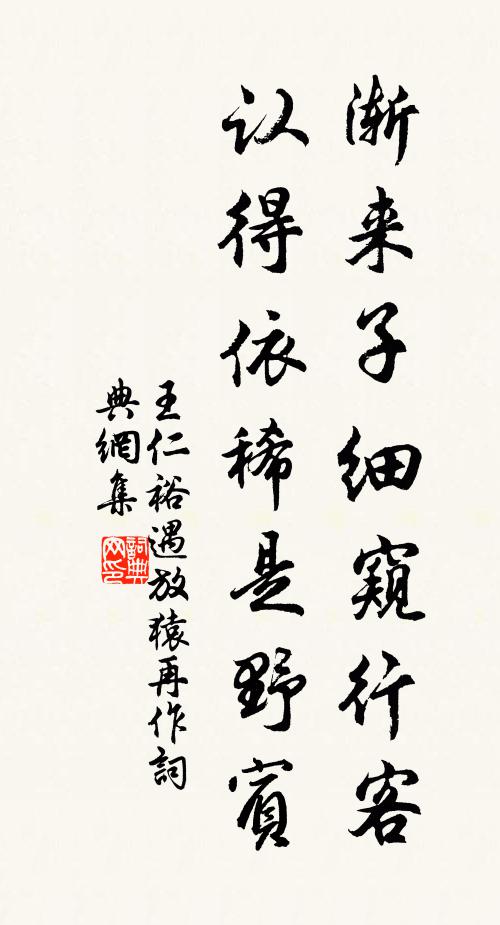 渐来子细窥行客
认得依稀是野宾
王仁裕遇放猿再作詞
典網集
詞典
网印